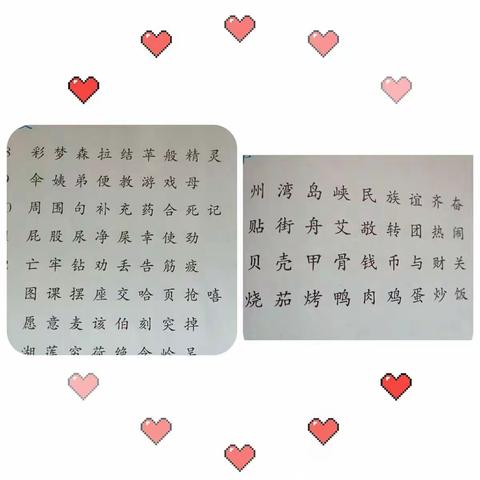 彩 梦 森 拉 结 苹 般 精 灵
伞 姨 弟 便 教 游 戏 母
周 围 句 补 充 药 合 死 记
屁 股 尿 净 屎 幸 使 劲
亡 牢 钻 劝 丢 告 筋 疲
图 课 摆 座 交 哈 页 抢 嘻
愿 意 麦 该 伯 刻 突 掉
湖 莲 穷 荷 绝 含 岭 吴
州 湾 岛 峡 民 族 谊 齐 奋
贴 街 舟 艾 敬 转 团 热 闹
贝 壳 甲 骨 钱 币 与 财 关
烧 茄 烤 鸭 肉 鸡 蛋 炒 饭